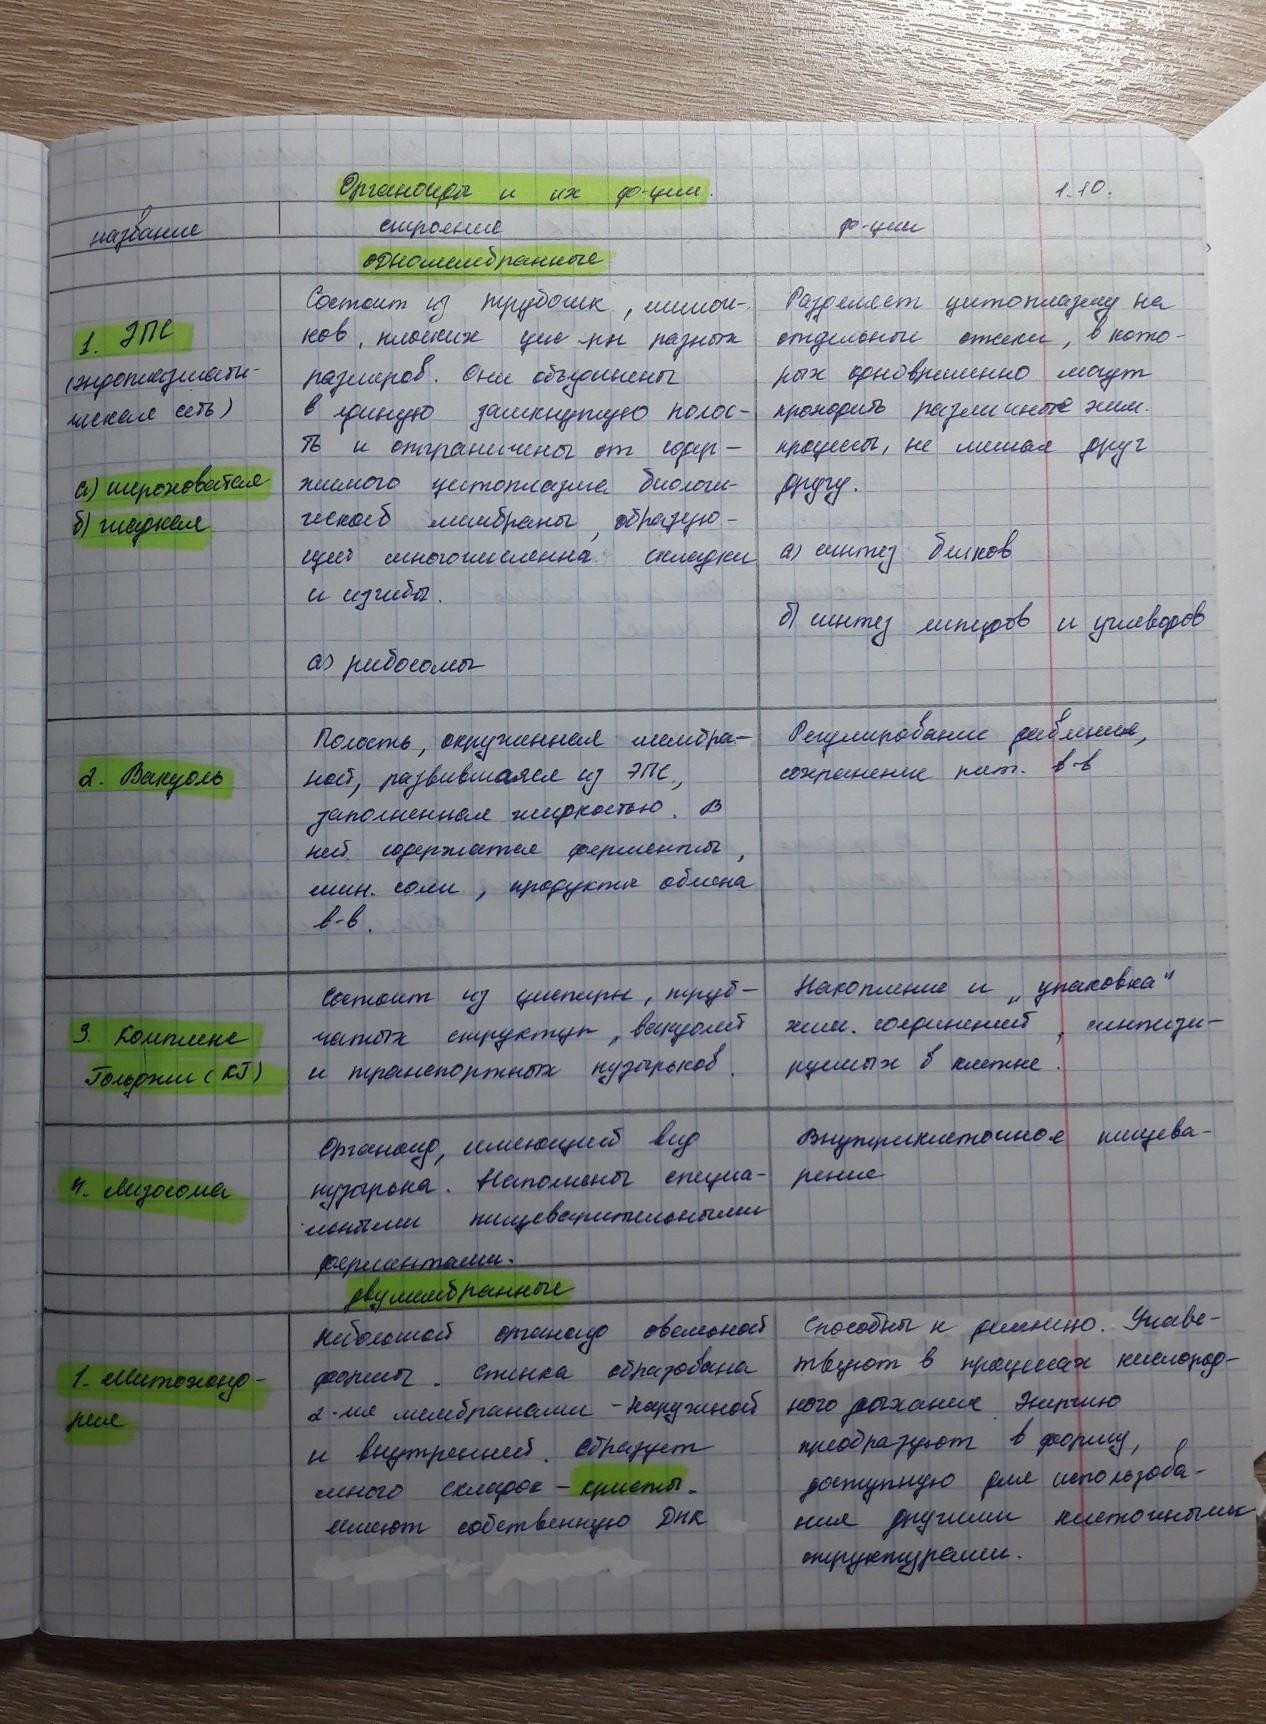 Органоиды и их ф-ции. 1.10.
название строение ф-ции
одномембранные
1. ЭПС
(эндоплазмати-
ческая сеть)
а) шероховатая
б) гладкая
Состоит из трубочек, мешоч-
ков, плоских цис-рн разных
размеров. Они объединены
в единую замкнутую полос-
ть и отграничены от содер-
жимого цитоплазма биологи-
ческой мембраны, образую-
щей многочисленна складки
и изгибы.
а) рибосомы
Разделяет цитоплазму на
отдельные отсеки, в кото-
рых одновременно могут
проходить различные хим.
процессы, не мешая друг
другу.
а) синтез белков
б) синтез липидов и углеводов
2. Вакуоль
Полость, окруженная мембра-
ной, развившаяся из ЭПС,
заполненная жидкостью. В
ней содержатся ферменты,
мин. соли, продукты обмена
в-в.
Регулирование давления,
сохранение пит. в-в
3. Комплекс
Гольджи (КГ)
Состоит из цистерн, труб-
чатых структур, вакуолей
и транспортных пузырьков.
Накопление и „упаковка"
хим. соединений, синтези-
руемых в клетке.
4. Лизосома
Органоид, имеющий вид
пузырька. Наполнены специа-
льными пищеварительными
ферментами.
Внутриклеточное пищева-
рение
двумембранные
1. Митохонд-
рия
Небольшой органоид овальной
формы. Стенка образована
2-мя мембранами - наружной
и внутренней. Образует
много складок - кристы.
Имеют собственную ДНК
Способны к делению. Учавс-
твуют в процессах кислород-
ного дыхания. Энергию
преобразуют в форму,
доступную для использова-
ния другими клеточными
структурами.